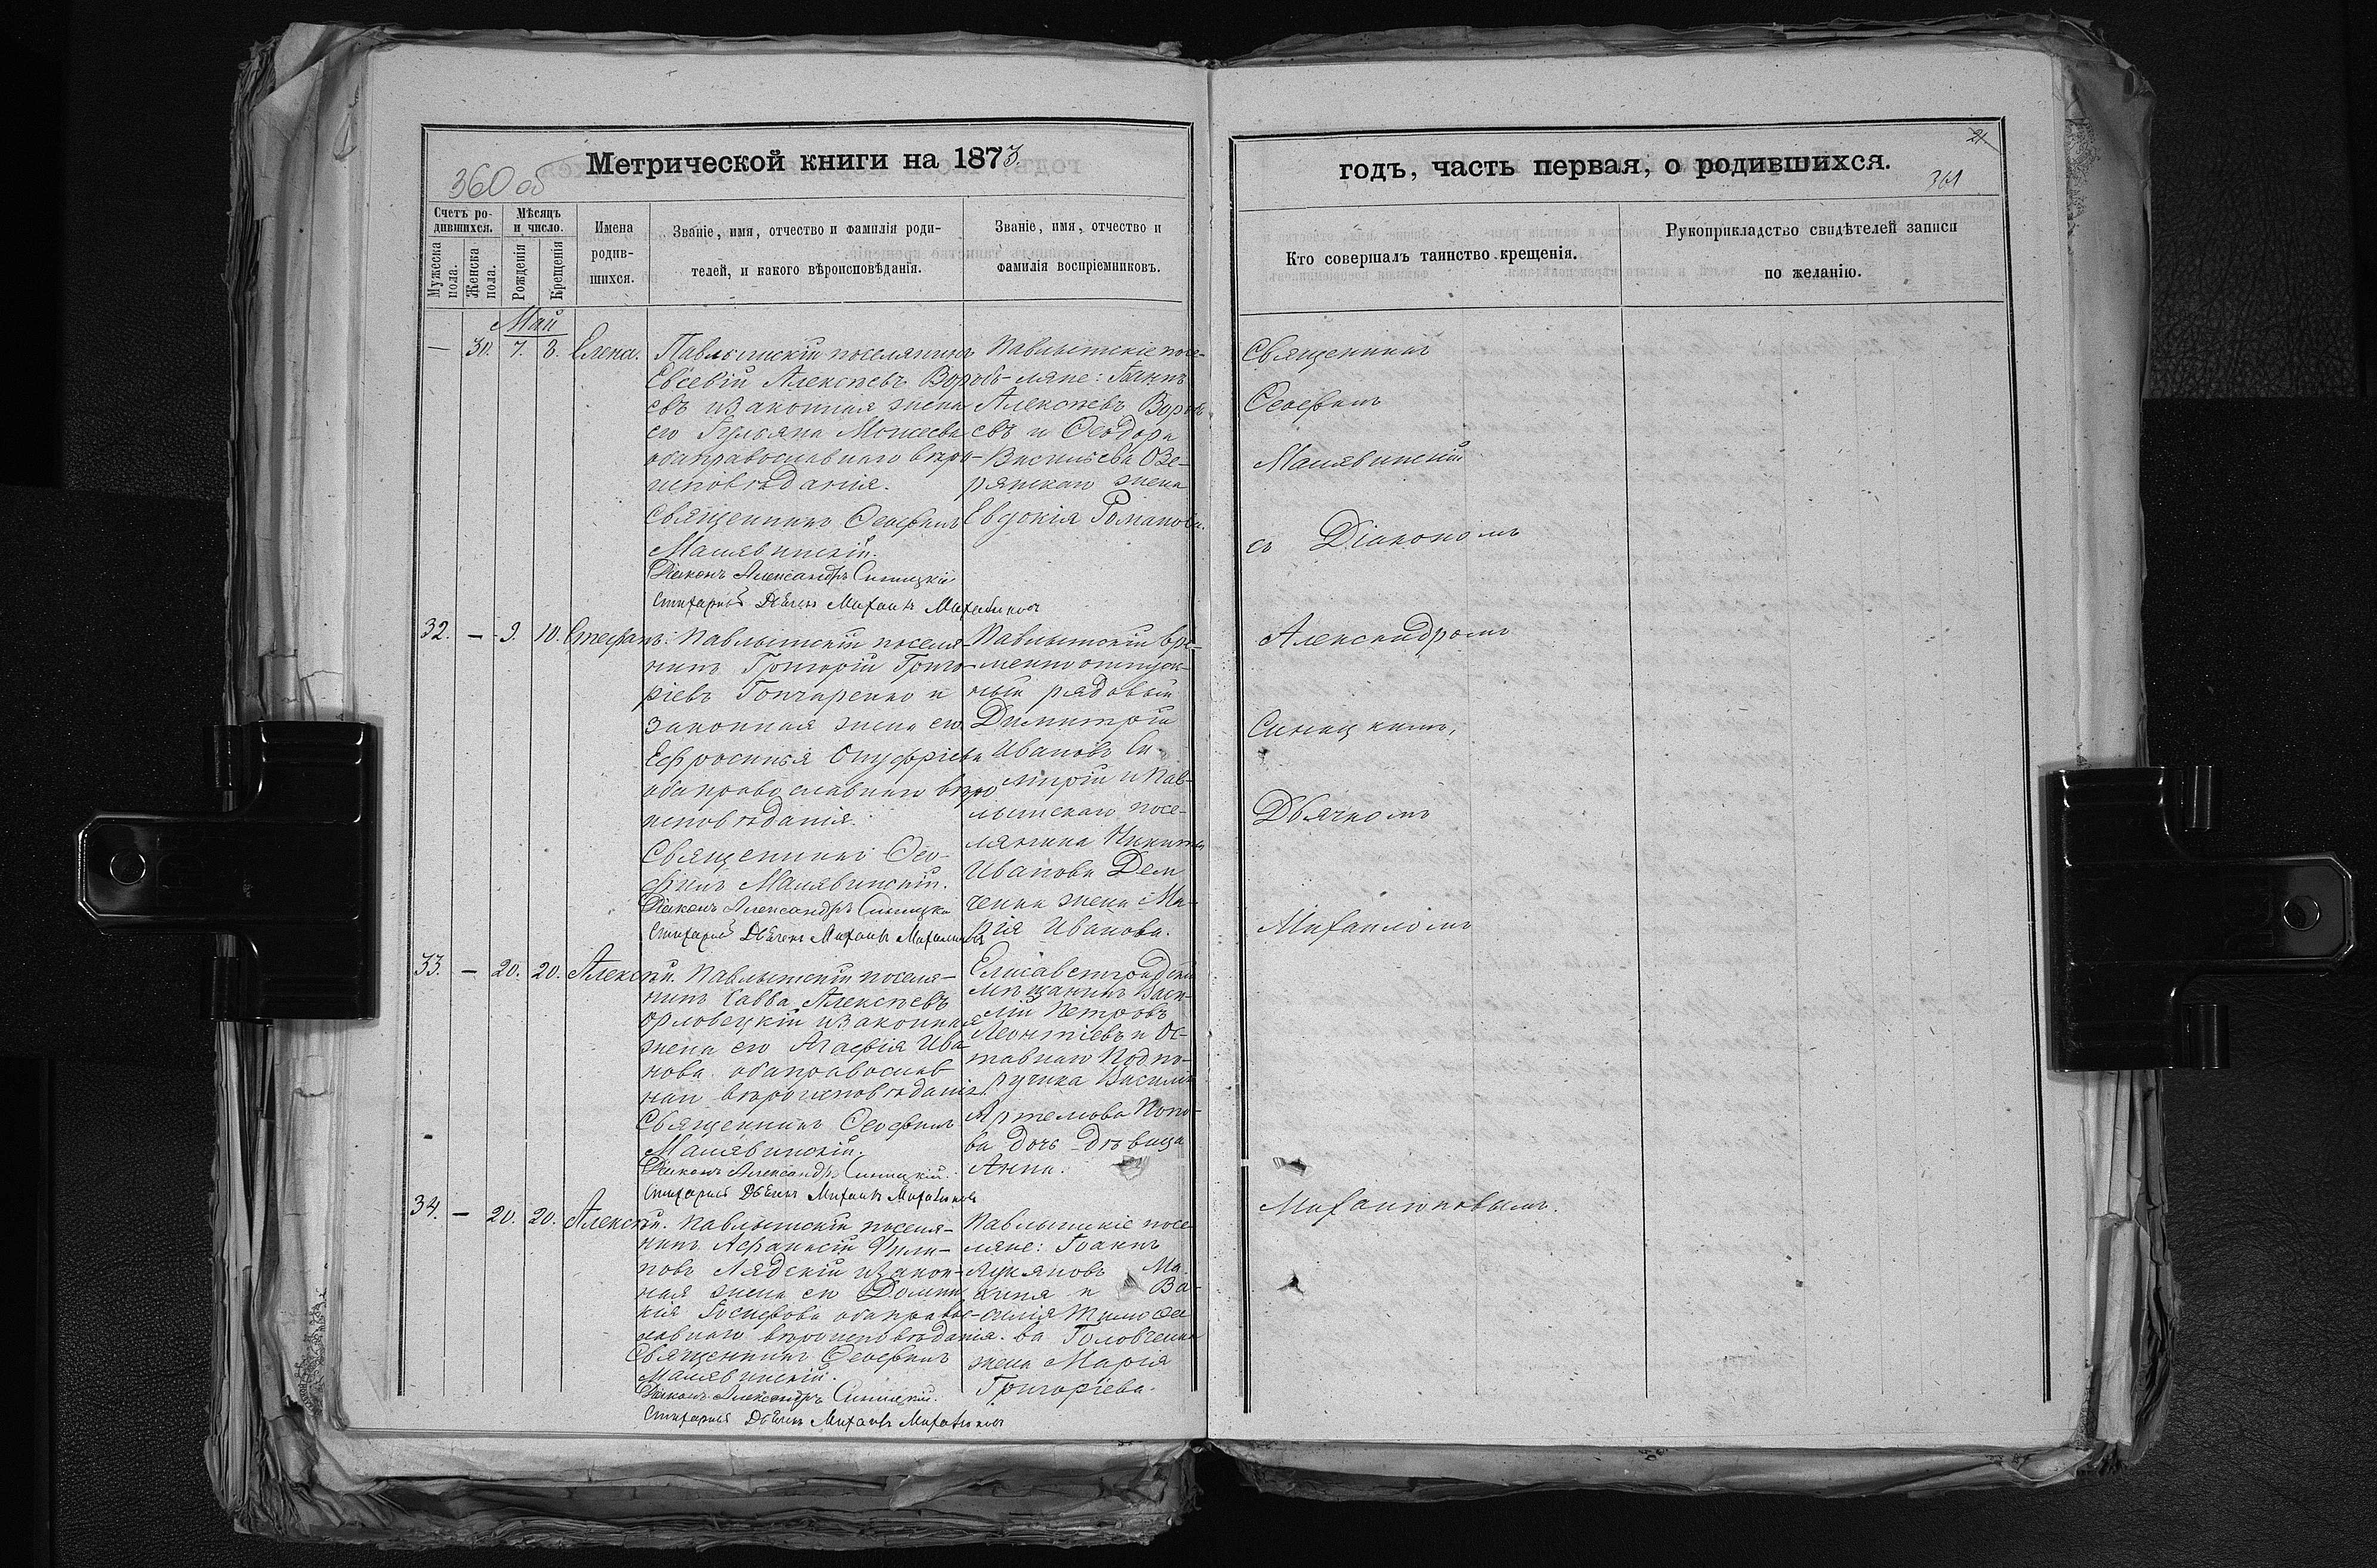 Метрической книги на 1873.
360 об
Счетъ ро-
дившихся.
Мужеска
пола.
Женска
пола.
Мѣсяцъ
и число.
Рожденія
Крещенія
Имена
родив-
шихся.
Званіе, имя, отчество и фамилія роди-
телей, и какого вѣроисповѣданія.
Званіе, имя, отчество и
фамилія воспріемниковъ.
Май
— 30. 7. 8. Елена.
Павлышскій поселянинъ
Евсевій Алексѣевъ Вороб-
евъ и законная жена
его Іульяна Моисеева
оба православнаго вѣро-
исповѣданія.
Священникъ Ѳеофилъ
Малявинскій.
Діаконъ Александръ Синицкій
Стихарный Дьячекъ Михаилъ
Павлышскіе посе-
ляне: Іоаннъ
Алексѣевъ Вороб
евъ и Ѳеодора
Васильева Озе-
рянскаго жена
Евдокія Романова.
32. — 9. 10. Стефанъ.
Павлышскій поселя-
нинъ Григорій Григо-
ріевъ Гончаренко и
законная жена его
Ефросинья Онуфріева
оба православнаго вѣро
исповѣданія.
Священникъ Ѳео-
филъ Малявинскій.
Діаконъ Александръ Синицкій
Стихарный Дьячекъ Михаилъ
Павлышскій вре-
менно отпуск-
ный рядовый
Димитрій
Ивановъ
и Пав-
лышскаго посе-
лянина Никиты
Иванова Дем
ченка жена Ма-
рія Иванова.
33. — 20. 20. Алексѣй.
Павлышскій поселя-
нинъ Савва Алексѣевъ
Орловецкій и законная
жена его Агафія Ива-
нова оба православ
наго вѣроисповѣданія.
Священникъ Ѳеофилъ
Малявинскій.
Діаконъ Александръ Синицкій.
Стихарный Дьячекъ Михаилъ
Елисаветградскій
мѣщанинъ Васи-
лій Петровъ
Леонтіевъ и От-
тавнаго Подпо-
ручика Василія
Артемова Попо-
ва дочь дѣвица
Анна.
34. — 20. 20. Алексѣй.
Павлышскій поселя-
нинъ Афанасій Фили-
повъ Лядскій и закон-
ная жена его Домни
кія Іосифова оба правос-
лавнаго вѣроисповѣданія.
Священникъ Ѳеофилъ
Малявинскій.
Діаконъ Александръ Синицкій.
Стихарный Дьячекъ Михаилъ
Павлышскіе посе
ляне: Іоаннъ
Лукяновъ
и Ва-
силія Тимофее
ва Головченка
жена Марія
Григоріева.
годъ, часть первая, о родившихся.
21
361
Кто совершалъ таинство крещенія.
Рукоприкладство свидѣтелей записи
по желанію.
Священникъ
Ѳеофилъ
Малявинскій
съ Діакономъ
Александромъ
Синицкимъ,
Дьячкомъ
Михаиломъ